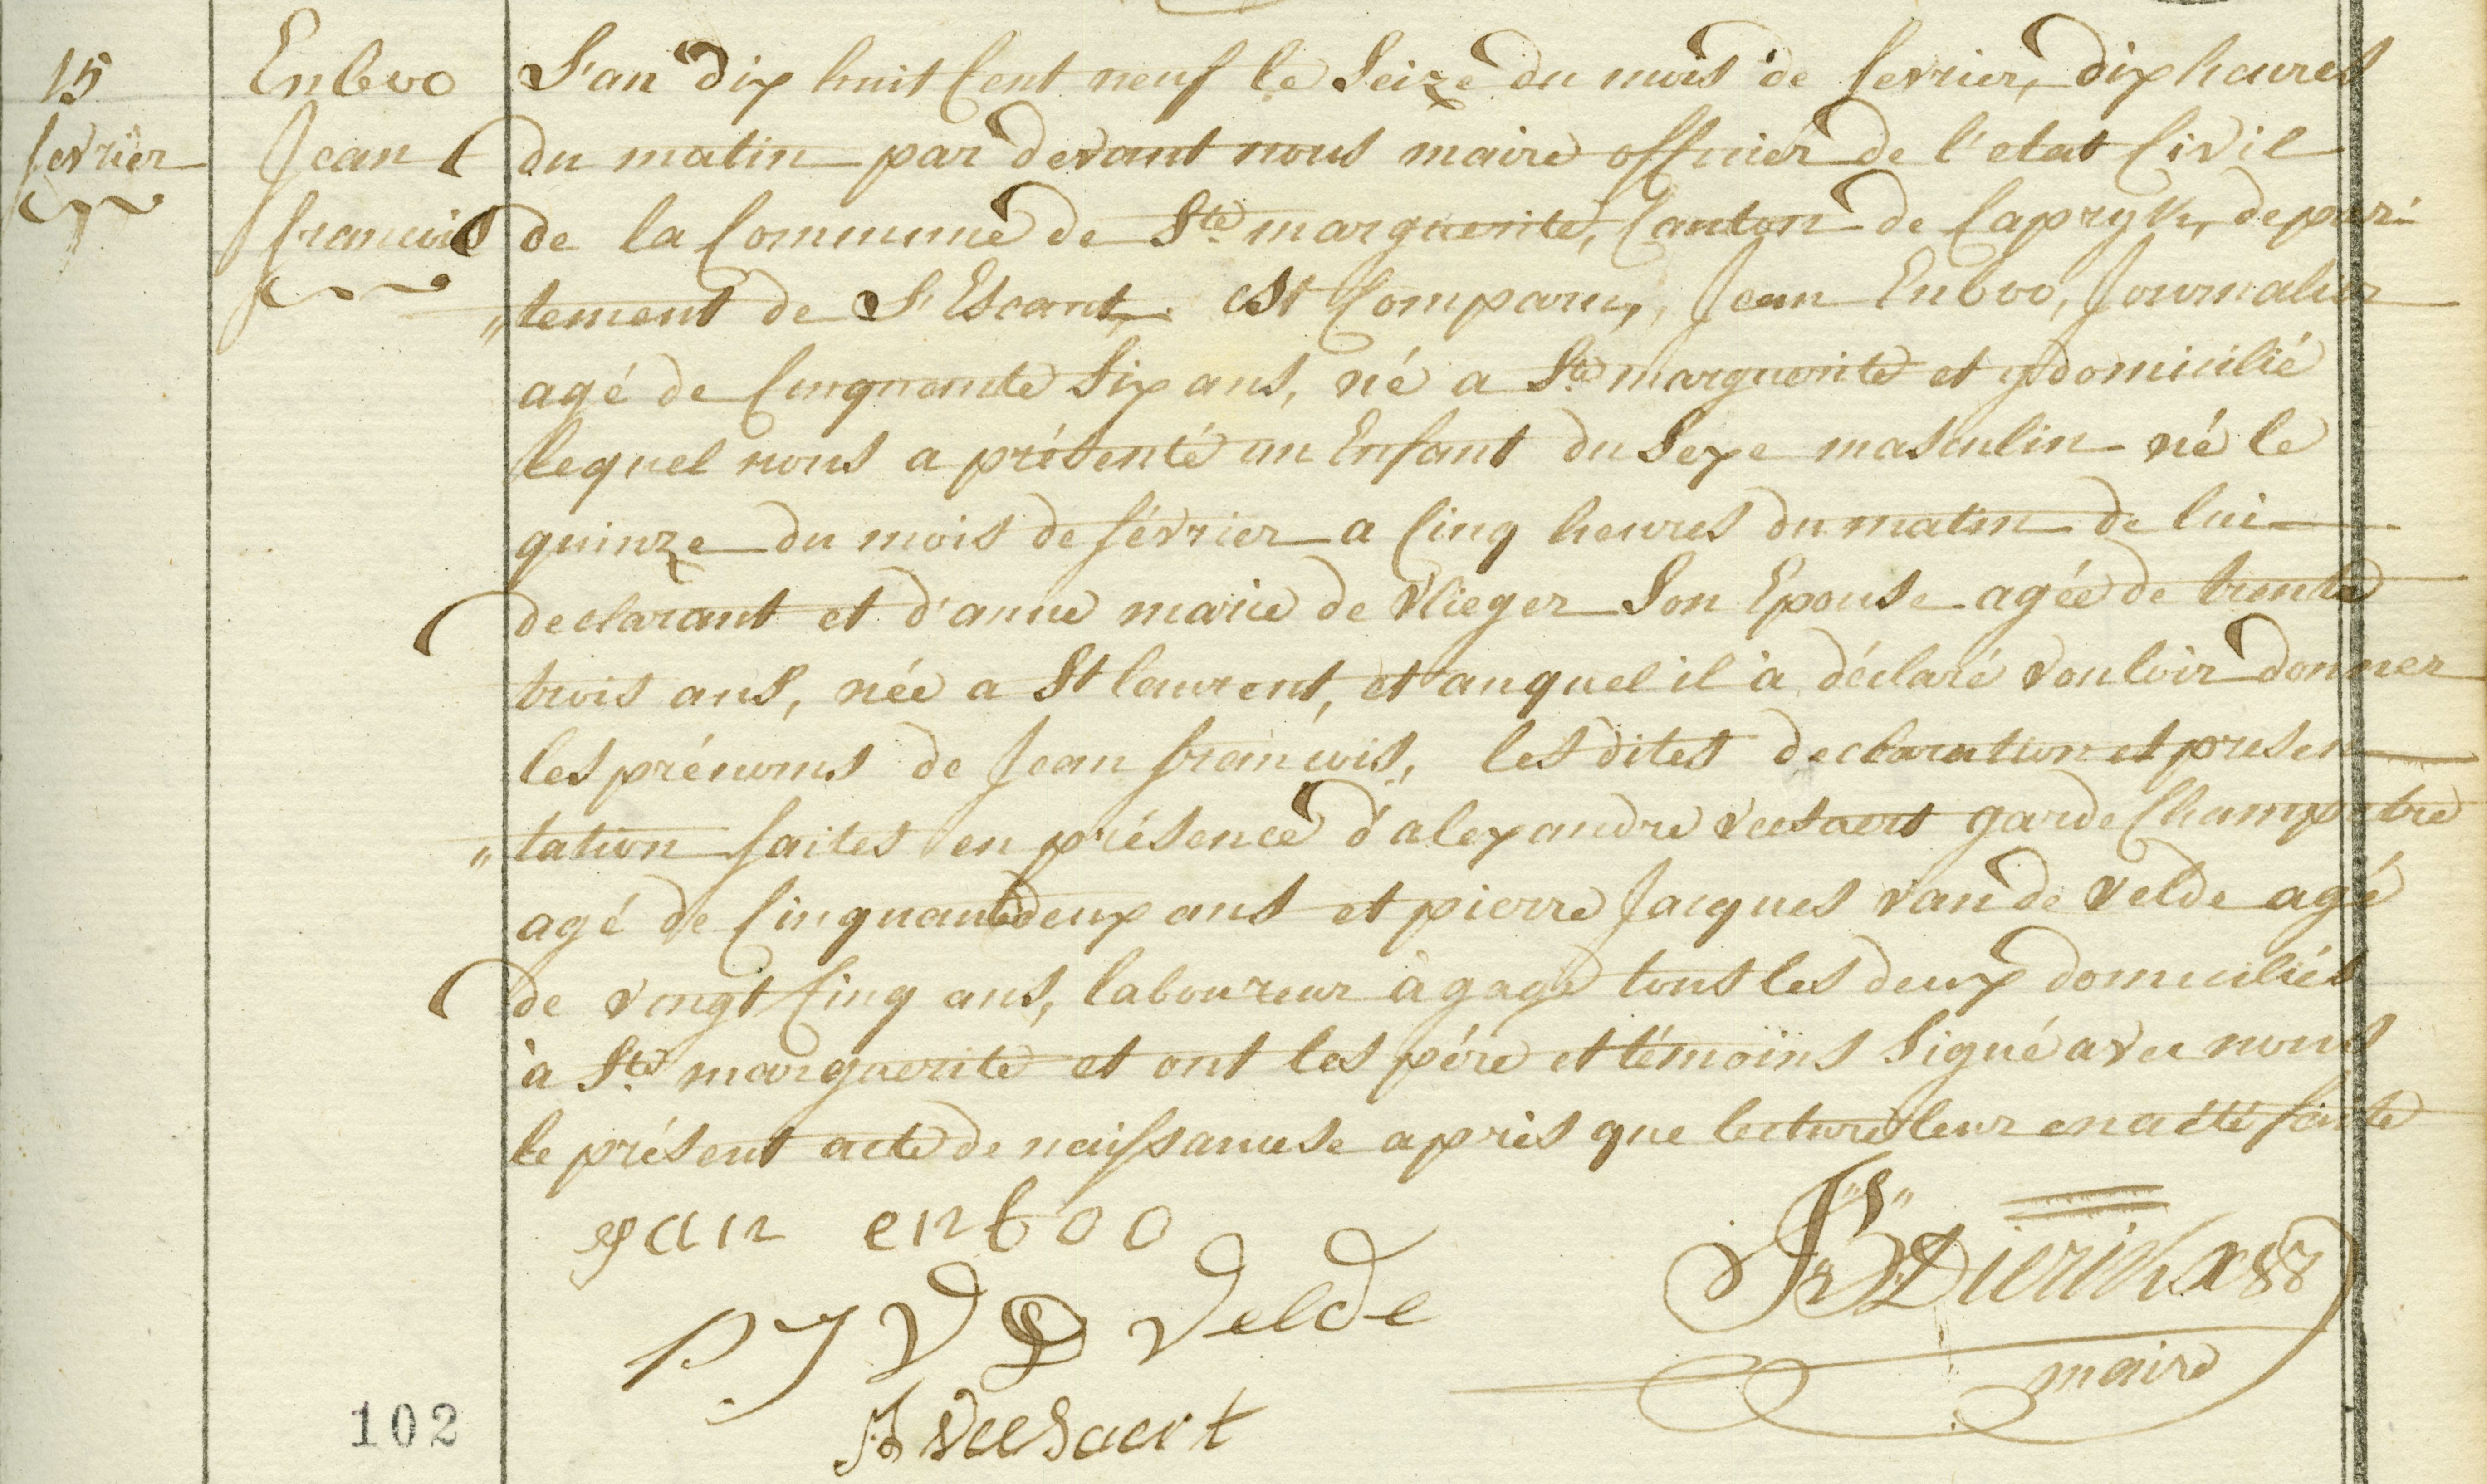 15
fevrier
Enboo
Jean
francois
L'an dix huit Cent neuf le Seize du mois de fevrier, dix heures
du matin par devant nous maire officier de l'etat Civil
de la Commune de Ste marguerite, Canton de Capryk, depar-
"tement de L'Escaut, est Comparu, Jean Enboo, Journalier
agé de Cinquante Six ans, né a Ste marguerite et y domicilié
lequel nous a présenté un Enfant du Sexe masculin né le
quinze du mois de février a Cinq heures du matin de lui
declarant et d'anne marie de Vlieger Son Epouse agée de trente
trois ans, née a St laurent, et auquel il à déclaré vouloir donner
les prénoms de Jean francois, les dites declaration et presen
"tation faites en présence d'alexandre Veesaert garde Champetre
agé de Cinquante deux ans et pierre Jacques van de Velde agé
de vingt Cinq ans, laboureur à gage tous les deux domiciliés
à Ste marguerite et ont les pére et témoins Signé avec nous
le présent acte de naissance apris que lecture leur en a été faite
yan enboo
P J V D Velde
A Veesaert
Dierickx
maire
102